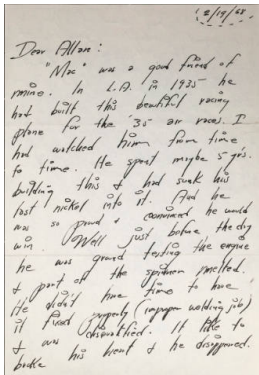 12/19/68
Dear Allan:
"Mac" was a good friend of
mine. In L.A. in 1935 he
had built this beautiful racing
plane for the '35 air races. I
had watched him from time
to time. He spent maybe 5 yrs.
building this & had sunk his
last nickel into it. And he
was so proud & convinced he would
win. Well just before the day
he was ground testing the engine
& part of the spinner melted.
He didn't have time to have
it fixed properly (improper welding job)
& was disqualified. It like to
broke his heart & he disappeared.